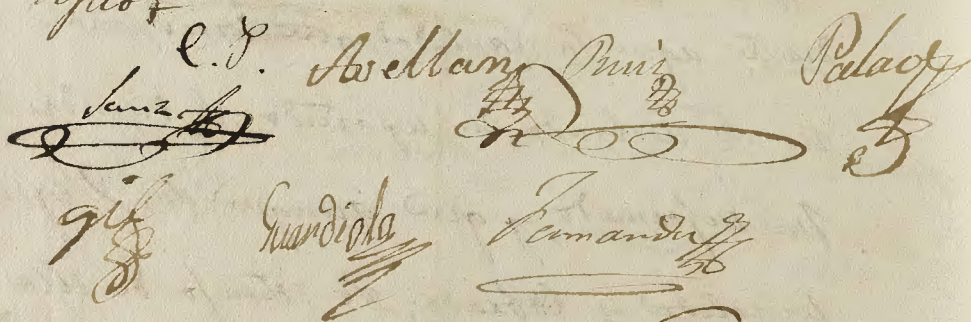 C. P. Avellan Ruiz Palao
Sanz
Gil Guardiola Fernandez